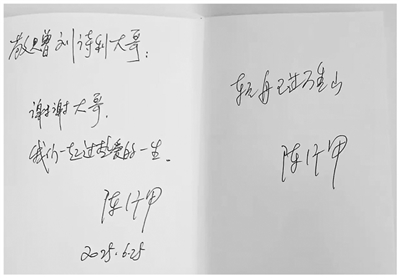 敬赠刘诗利大哥：
谢谢大哥.
我们一起过热爱的一生.
陈行甲
2025.6.25
轻舟已过万重山
陈行甲